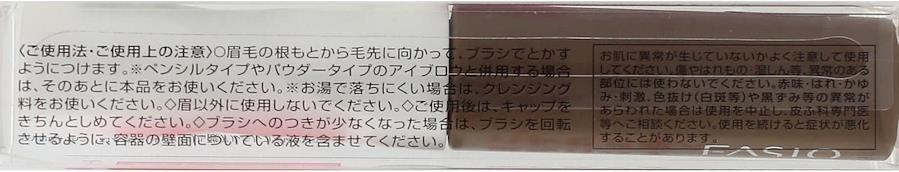 〈ご使用法・ご使用上の注意〉○眉毛の根もとから毛先に向かって、ブラシでとかす
ようにつけます。※ペンシルタイプやパウダータイプのアイブロウと併用する場合
は、そのあとに本品をお使いください。※お湯で落ちにくい場合は、クレンジング
料をお使いください。◇眉以外に使用しないでください。◇ご使用後は、キャップを
きちんとしめてください。◇ブラシへのつきが少なくなった場合は、ブラシを回転
させるように、容器の壁面についている液を含ませてください。
お肌に異常が生じていないかよく注意して使用
してください。傷やはれもの・湿しん等、異常のある
部位には使わないでください。赤味・はれ・かゆ
み・刺激、色抜け(白斑等)や黒ずみ等の異常が
あらわれた場合は使用を中止し、皮ふ科専門医
等へご相談ください。使用を続けると症状が悪化
することがあります。
FASIO